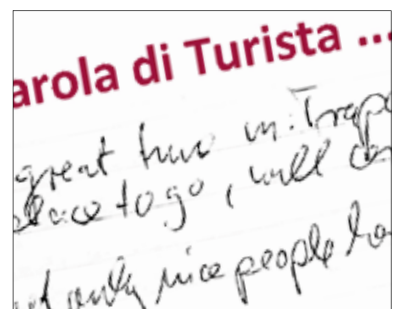 arola di Turista ...
great time in Trapa
place to go, will co
not only nice people ha